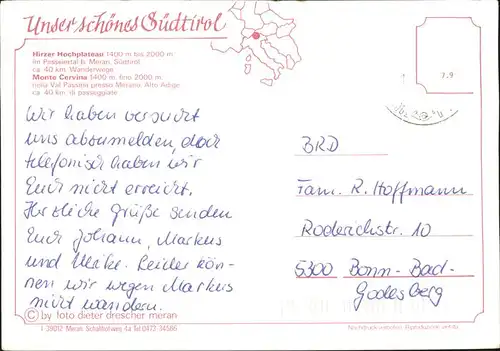 Unser schönes Südtirol
Hirzer Hochplateau 1400 m bis 2000 m
im Passeiertal b. Meran, Südtirol
ca 40 km Wanderwege
Monte Cervina 1400 m fino 2000 m
nella Val Passiria presso Merano, Alto Adige
ca 40 km di passeggiate
7.9
Wir haben versucht
uns abzumelden, doch
telefonisch haben wir
Euch nicht erreicht.
Herzliche Grüße senden
Euch Johann, Markus
und Ulrike. Leider kön-
nen wir wegen Markus
nicht wandern.
BRD
Fam. R. Hoffmann
Roderichstr. 10
5300 Bonn-Bad-
Godesberg
© by foto dieter drescher meran
I 39012 Meran Schafferhofweg 4a Tel 0473 34586
Nachdruck verboten Riproduzione vietata